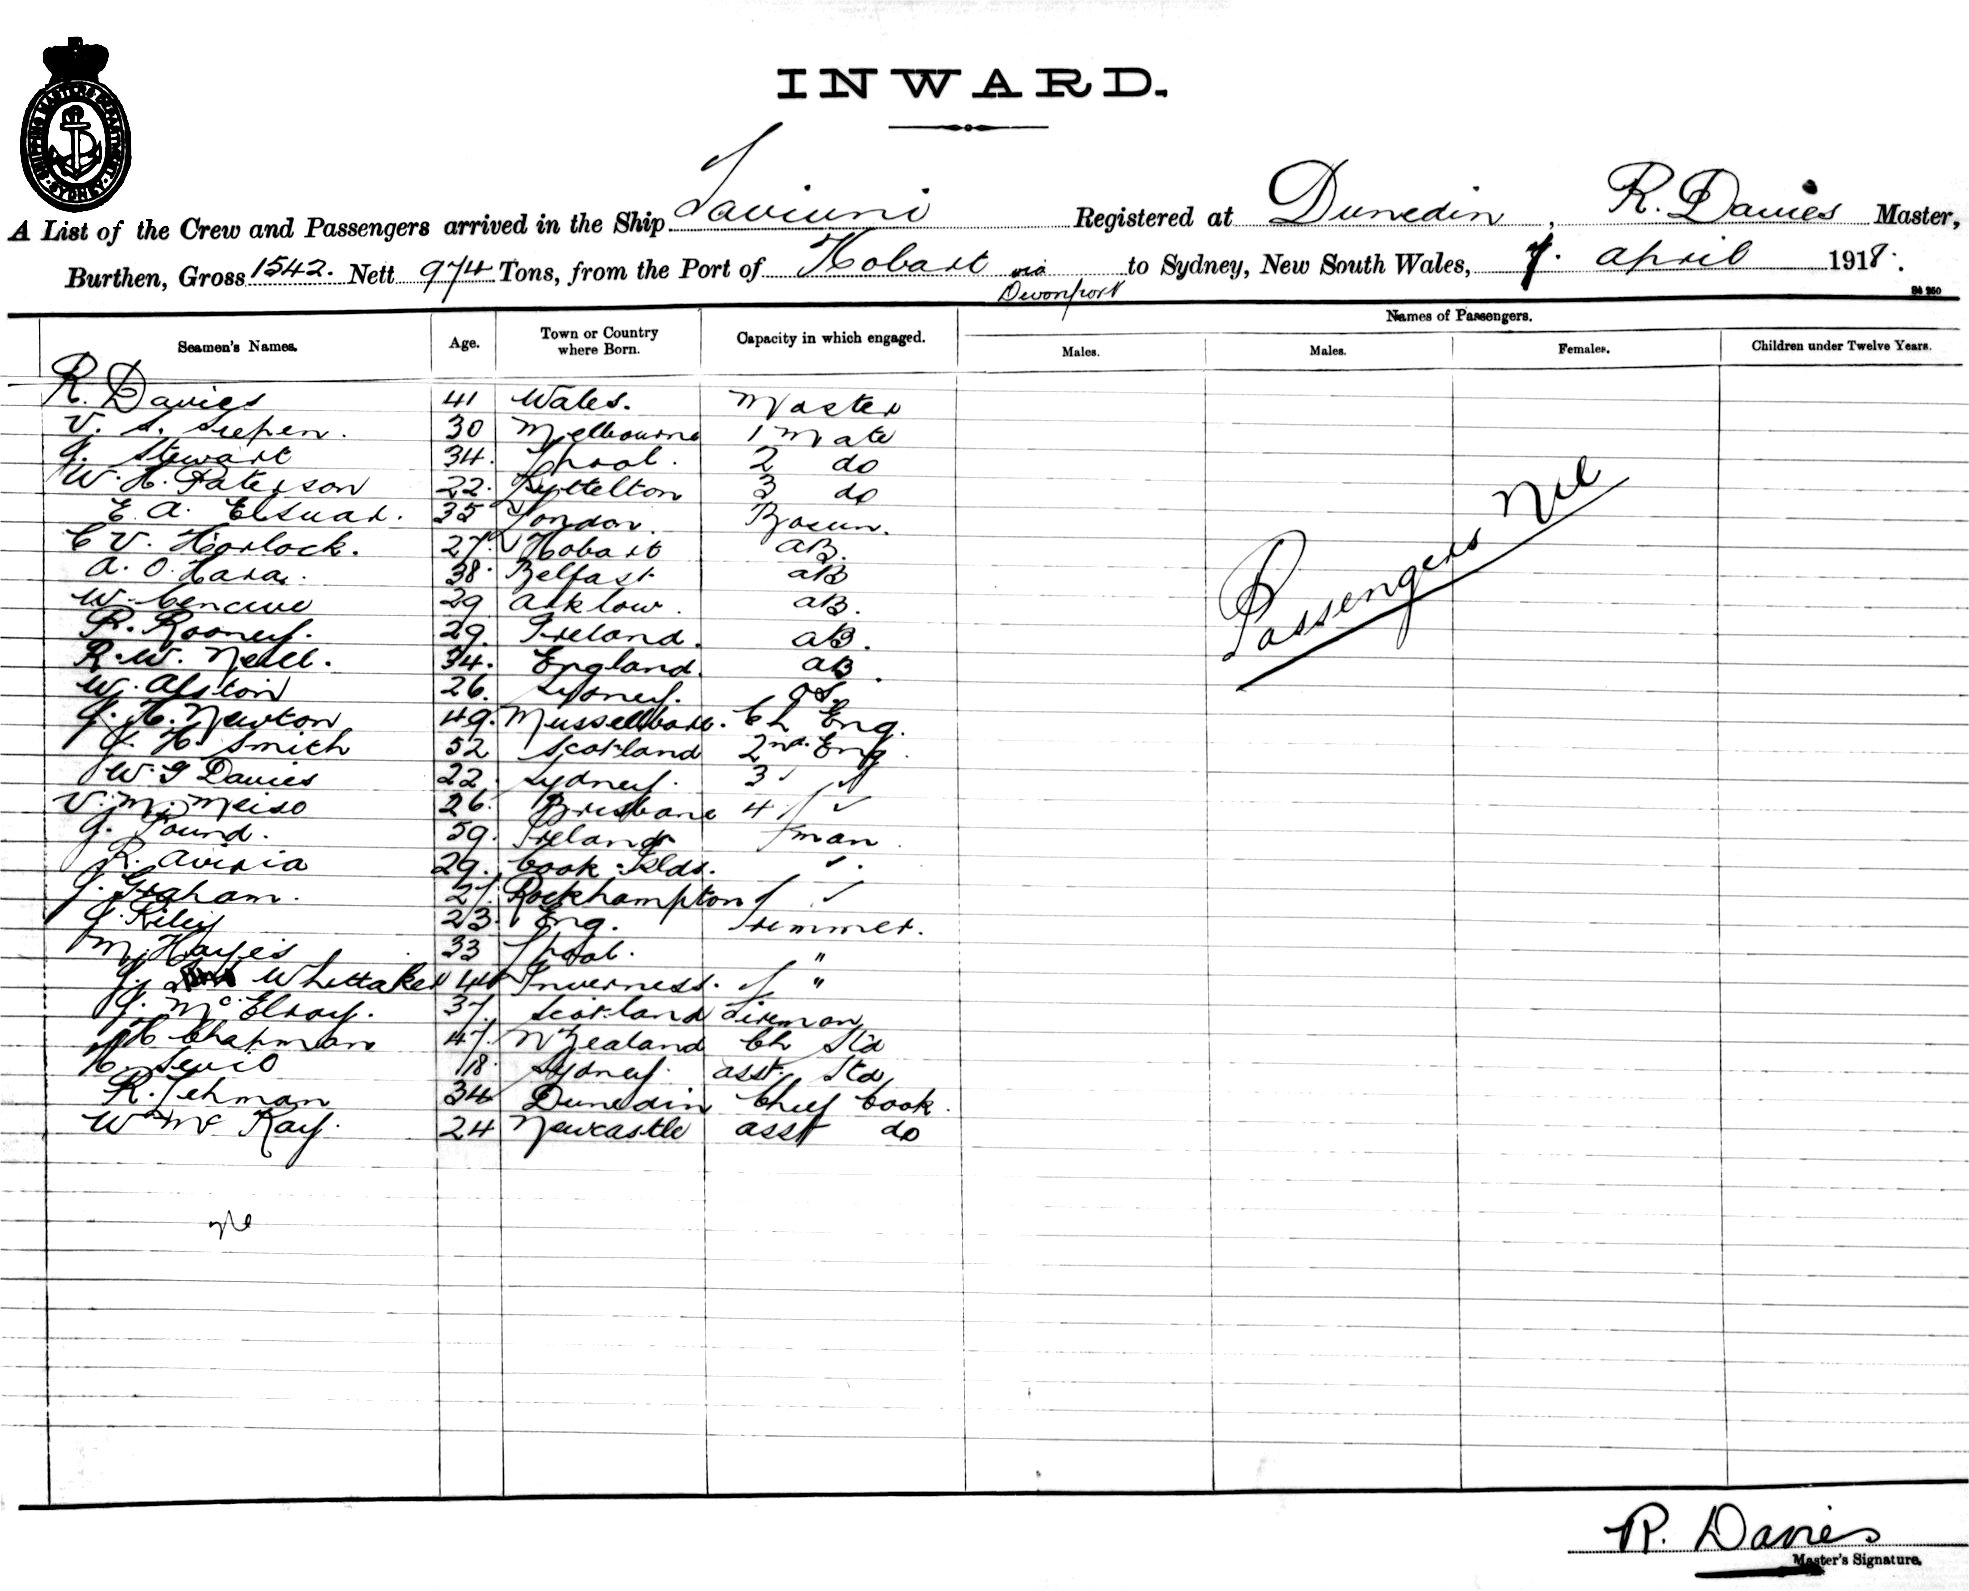 INWARD.
SHIPPING MASTERS DEPARTMENT SYDNEY
A List of the Crew and Passengers arrived in the Ship Taviuni Registered at Dunedin, R. Davies Master,
Burthen, Gross 1542. Nett 974 Tons, from the Port of Hobart via Devonport to Sydney, New South Wales, 7. April 1918.
Names of Passengers.
Seamen's Names. Age. Town or Country where Born. Capacity in which engaged. Males. Males. Females. Children under Twelve Years.
R. Davies 41 Wales. Master
V. S. 30 Melbourne 1 Mate
J. Stewart 34. L'pool. 2 do
W. H. Paterson 22. Lyttelton 3 do
E. A. 35 London. Bosun.
C V. Horlock. 27. Hobart AB.
A. O. Hara. 38. Belfast AB
W. 29 Arklow. AB.
R. Rooney. 29. Ireland. AB.
R. W. Neill. 34. England. AB.
W. Alston 26. Sydney. OS
J. H. Newton 49. Ch Eng.
J. H. Smith 52 Scotland 2nd. Eng.
W. G Davies 22. Sydney. 3
V. M. 26. Brisbane 4
J. Pound. 59. Ireland Fman
R. 29. Cook Islds. "
J. Graham. 27. Rockhampton
J. Riley 23. Eng. Trimmer.
M. Hayes 33 L'pool. "
J. Whittaker 44 Inverness. "
J. McElroy. 37. Scotland Fireman
H Chapman 47. N Zealand Ch Std
18. Sydney. asst. Std
R. Lehman 34 Dunedin Chief Cook.
W Mc Kay. 24 Newcastle asst do
Passengers Nil
R. Davies
Master's Signature.